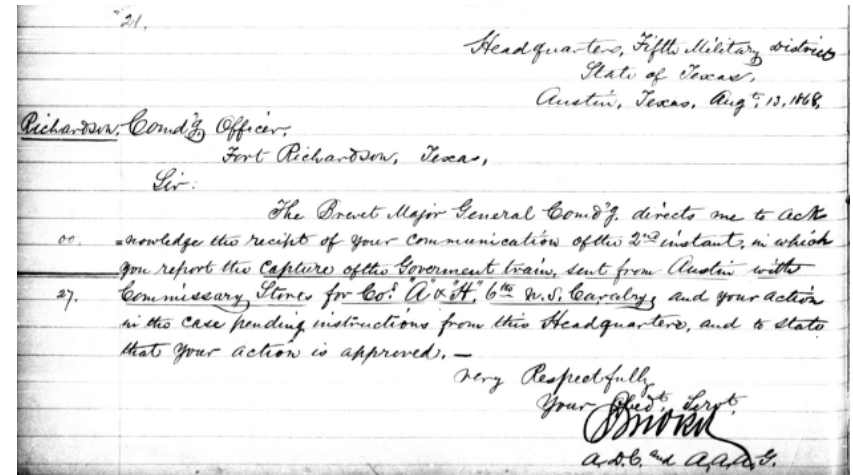 "21.
Headquarters, Fifth Military District
State of Texas,
Austin, Texas, Augt. 13, 1868,
Richardson, Comd'g Officer,
Fort Richardson, Texas,
Sir:
The Brevet Major General Comd'g. directs me to ack
00. =nowledge the recipt of your communication of the 2nd instant, in which
you report the Capture of the Goverment train, sent from Austin with
27. Commissary Stores for Cos. "A" & "H," 6th U.S. Cavalry, and your action
in the case pending instructions from this Headquarters, and to state
that your action is approved. —
Very Respectfully
Your Obedt. Servt.
A.D.C. and A.A.A.G.